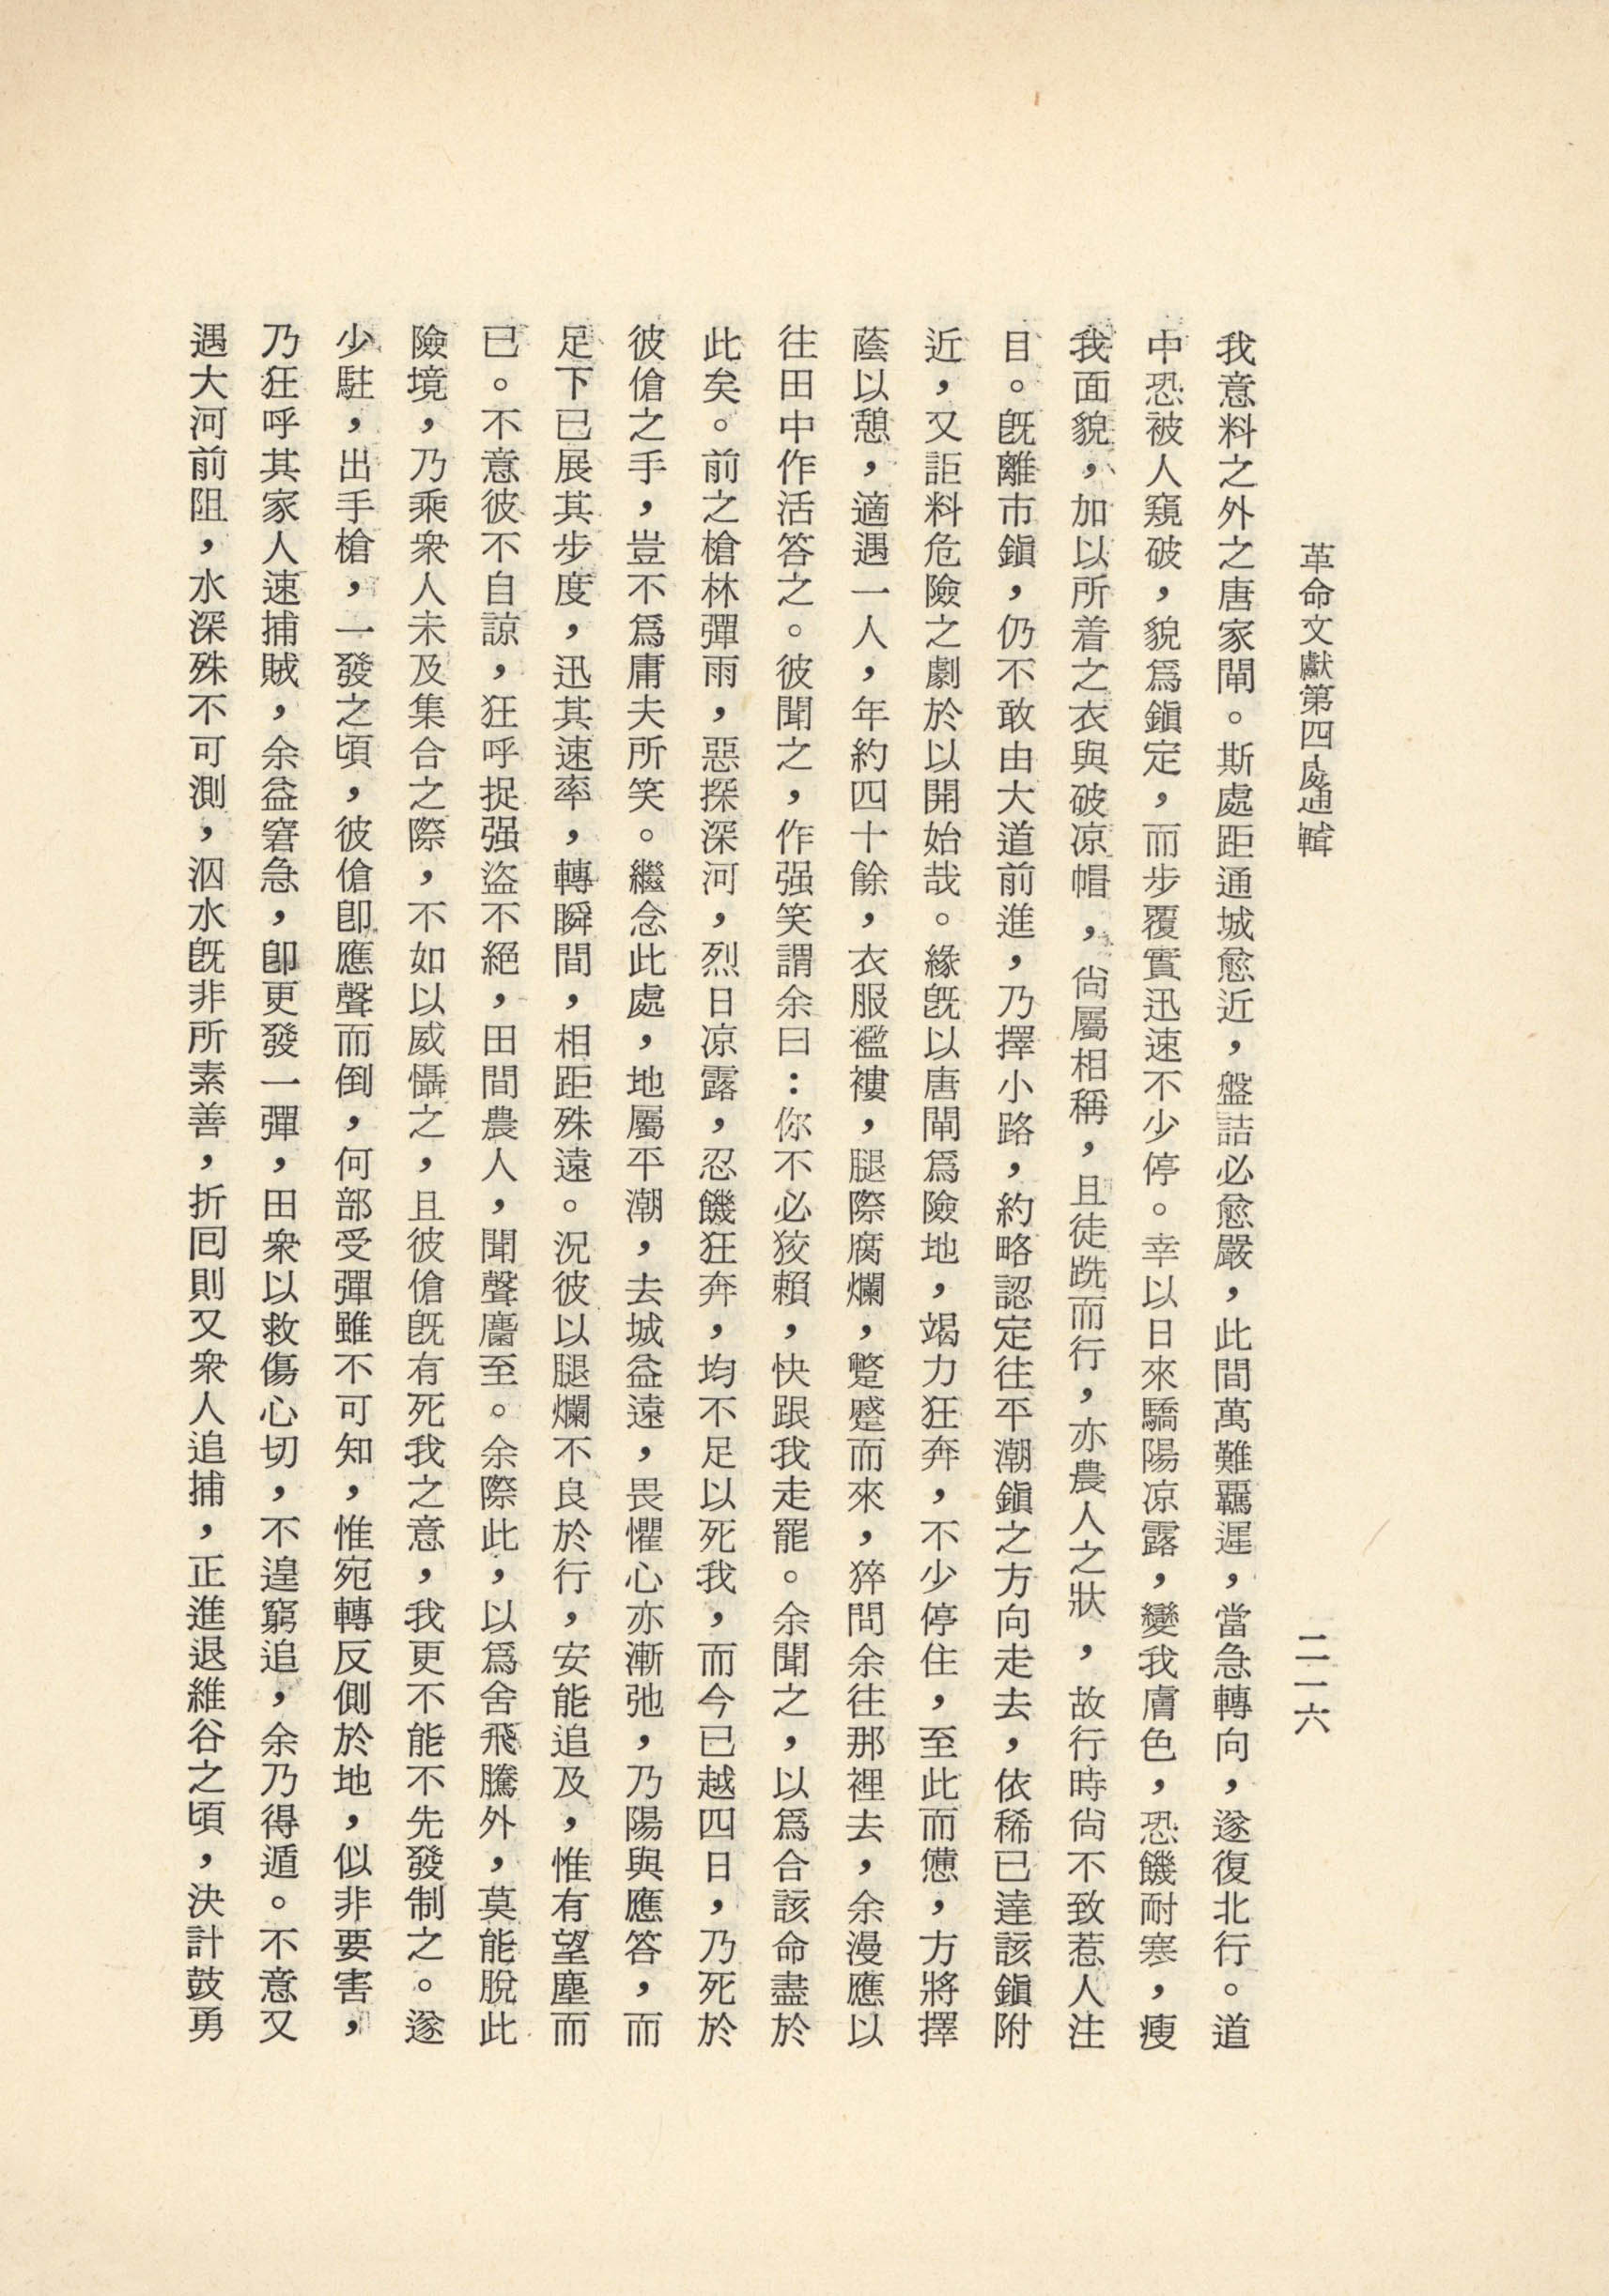 革命文獻第四處通輯
二一六
我意料之外之唐家閘。斯處距通城愈近，盤詰必愈嚴，此間萬難羈遲，當急轉向，遂復北行。道
中恐被人窺破，貌爲鎭定，而步覆實迅速不少停。幸以日來驕陽凉露，變我膚色，恐饑耐寒，瘦
我面貌，加以所着之衣與破凉帽，尙屬相稱，且徒跣而行，亦農人之狀，故行時尙不致惹人注
目。旣離市鎭，仍不敢由大道前進，乃擇小路，約略認定往平潮鎭之方向走去，依稀已達該鎭附
近，又詎料危險之劇於以開始哉。緣旣以唐閘爲險地，竭力狂奔，不少停住，至此而憊，方將擇
蔭以憩，適遇一人，年約四十餘，衣服襤褸，腿際腐爛，蹩躄而來，猝問余往那裡去，余漫應以
往田中作活答之。彼聞之，作强笑謂余曰：你不必狡賴，快跟我走罷。余聞之，以爲合該命盡於
此矣。前之槍林彈雨，惡探深河，烈日凉露，忍饑狂奔，均不足以死我，而今已越四日，乃死於
彼傖之手，豈不爲庸夫所笑。繼念此處，地屬平潮，去城益遠，畏懼心亦漸弛，乃陽與應答，而
足下已展其步度，迅其速率，轉瞬間，相距殊遠。況彼以腿爛不良於行，安能追及，惟有望塵而
已。不意彼不自諒，狂呼捉强盜不絕，田間農人，聞聲麕至。余際此，以爲舍飛騰外，莫能脫此
險境，乃乘衆人未及集合之際，不如以威懾之，且彼傖旣有死我之意，我更不能不先發制之。遂
少駐，出手槍，一發之頃，彼傖卽應聲而倒，何部受彈雖不可知，惟宛轉反側於地，似非要害，
乃狂呼其家人速捕賊，余益窘急，卽更發一彈，田衆以救傷心切，不遑窮追，余乃得遁。不意又
遇大河前阻，水深殊不可測，泅水旣非所素善，折囘則又衆人追捕，正進退維谷之頃，決計鼓勇